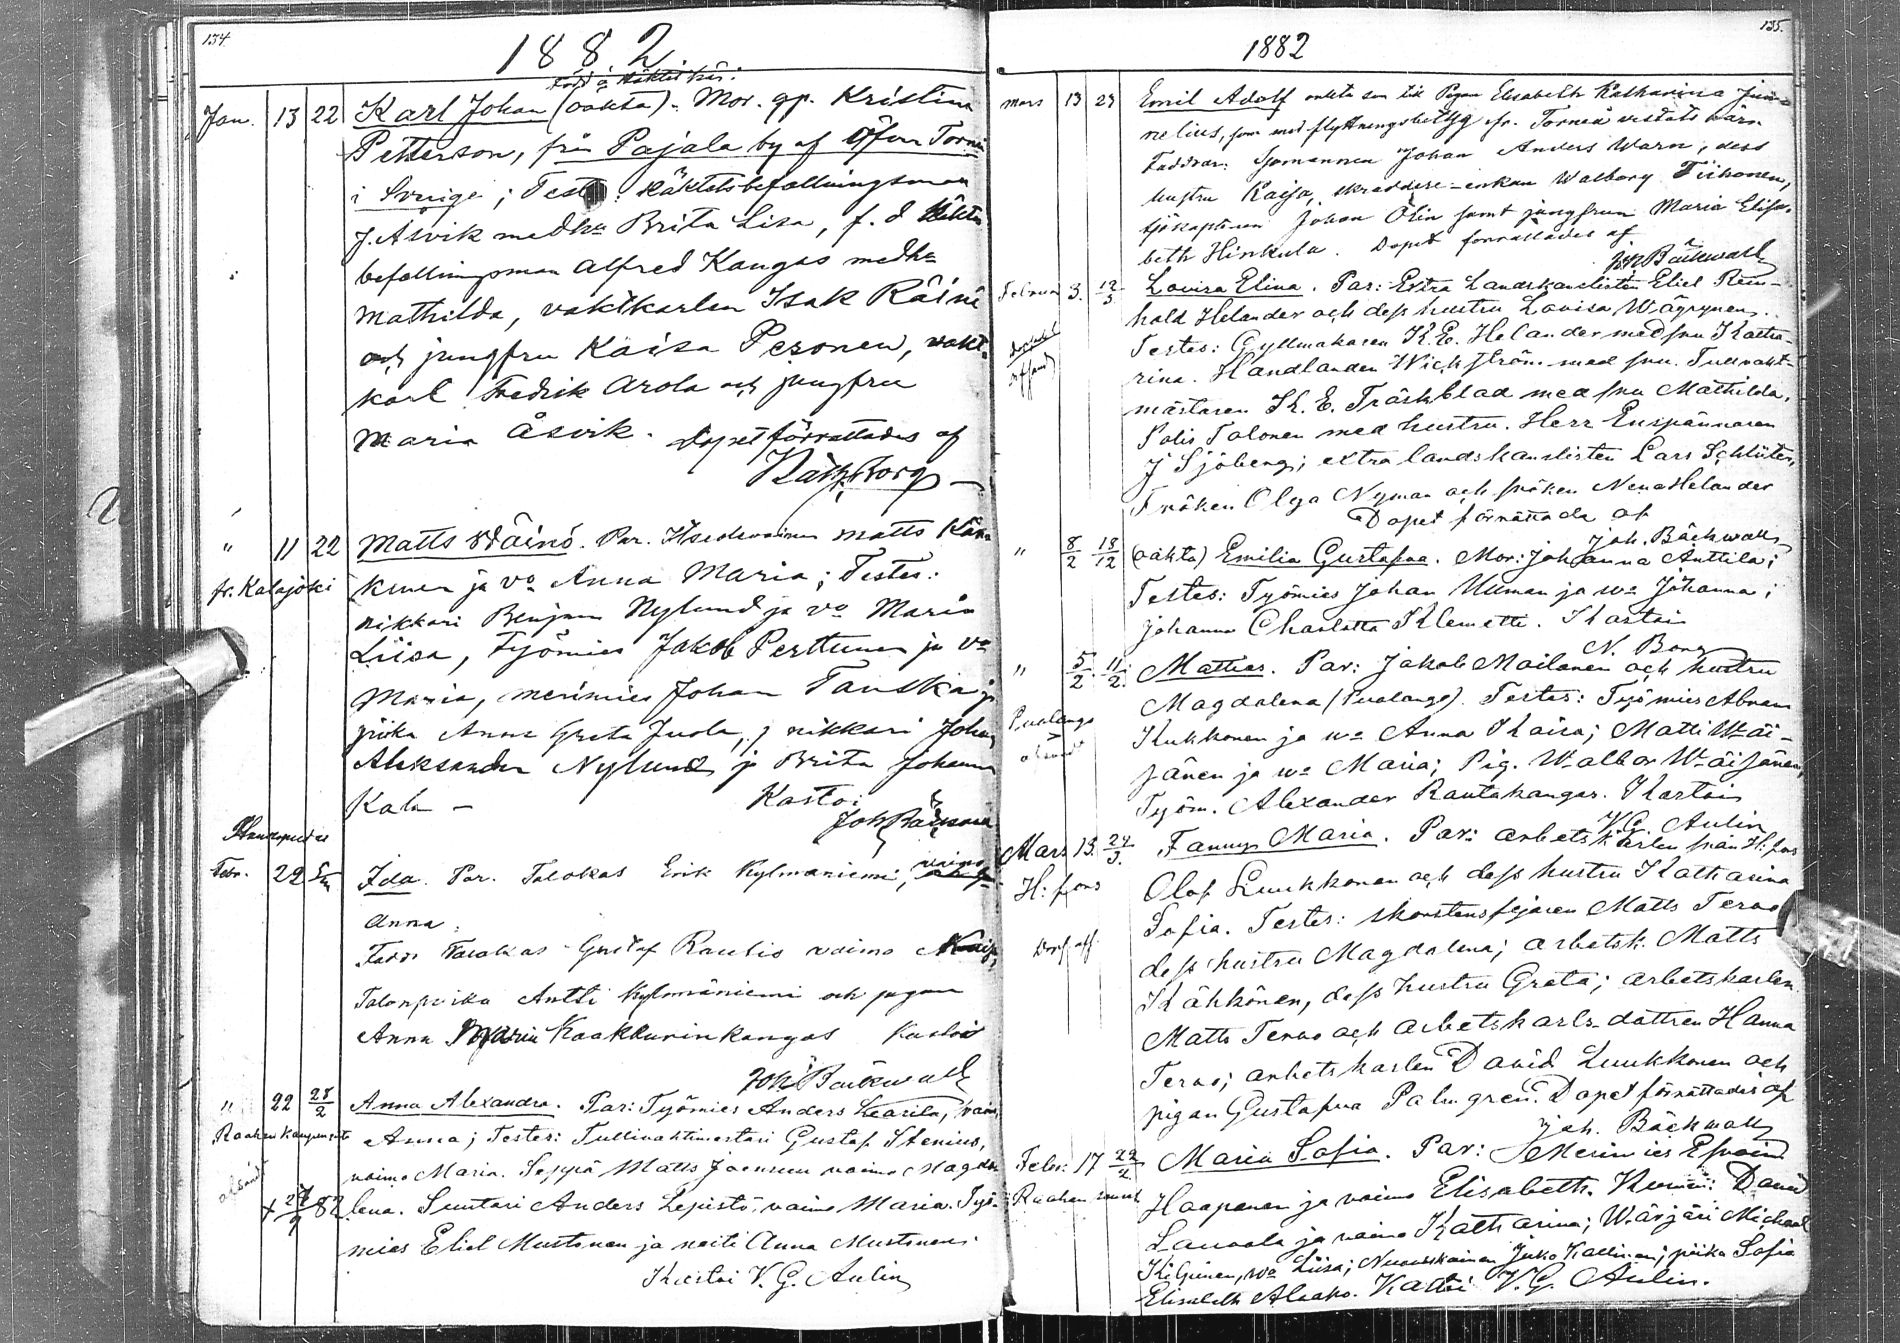 134.
1882
född i häktet här.
Jan. 13 22 Karl Johan (oäkta). Mor. gp. Kristina
Petterson, från Pajala by af Öfver Torneå
i Sverige; Test: häktetsbefallningsman
J. Åsvik med ha Brita Lisa, f. d. häkts
befallningsman Alfred Kangas med ha
Mathilda, vaktkarlen Isak Räinä
och jungfru Kaisa Pesonen, vakt-
karl Fredik Arola och jungfru
Maria Åsvik. Dopet förrättades af
Borg
" 11 22 Matts Wäinö. Par. Itsellisvainen Matts Kän-
fr. Kalajoki kinen ja vo Anna Maria; Testes:
nikkari Benjam Nylund ja vo Maria
Liisa, Työmies Jakob Perttunen ja vo
Maria, merimies Johan Tanska ja
piika Anna Greta Juola, j nikkari Johan
Aleksander Nylund ja Brita Johanna
Kala — Kastoi
Joh. Bäckwall
Haukipudas
Febr. 22 Ida. Par. Talokas Erik Kylmäniemi, vaimo
Anna.
Fadd: Talokas Gustaf Rautio vaimo Kaisa,
Talonpoika Antti Kylmäniemi och pigan
Anna Maria Kaakkurinkangas Kastoi
Joh. Bäckwall
" 22 28/2 Anna Alexandra. Par: Työmies Anders Learila, vaim.
Raahen kaupungista Anna; Testes: Tullivahtimestari Gustaf Stenius,
vaimo Maria. Seppä Matts Joensuu vaimo Magda-
afsänd
+ 27/9 82 lena. Suutari Anders Lepistö, vaimo Maria. Työ-
mies Eliel Mustonen ja neiti Anna Mustonen.
Kastoi V. G. Aulin
135.
1882
Mars 13 29 Emil Adolf oäkta son till Pigan Elisabeth Katharina Jun-
nelius, som med flyttningsbetyg fr. Torneå vistats här.
Faddrar: Sjömannen Johan Anders Warn, dess
hustru Kaisa, skräddare-enkan Walborg Tiihonen,
sjökaptenen Johan Ölin samt jungfrun Maria Elisa-
beth Hinkula. Dopet förrättades af
Joh Bäckwall
Februari 3. 12/3 Lovisa Elina. Par: Extra Landskanslisten Eliel Rein-
hold Helander och dess hustru Lovisa Wäyrynen.
Testes: Gyllmakaren K. E. Helander med fru Katha-
rina. Handlanden Wickström med fru. Tullvakt-
mästaren K. E. Träskblad med fru Mathilda.
Polis Tolonen med hustru. Herr Enspännaren
J Sjöberg; extra landskanslisten Lars Schlüter,
Fröken Olga Nyman och fröken Nena Helander
Dopet förrättade af
Joh. Bäckwall
" 8/2 18/12 (oäkta) Emilia Gustafva. Mor: Johanna Anttila;
Testes: Työmies Johan Uuman ja wo Johanna;
Johanna Charlotta Klemetti. Kastoi
N. Borg
" 5/2 11/2 Mathias. Par: Jakob Mailanen och hustru
Magdalena (Pualango). Testes: Työmies Abram
Pualango Kukkonen ja wo Anna Kaisa; Matti Wäi-
afsändt
sänen ja wo Maria; Pig. Walbor Wäisänen,
Työm. Alexander Rautakangas. Kastoi
V.G. Aulin
Mars 13. 24/3. Fanny Maria. Par: arbetskarlen från H:fors
H:fors Olof Luukkonen och dess hustru Katharina
Sofia. Testes: skorstensfejaren Matts Tervo
dess hustru Magdalena; arbetsk. Matts
Kähkönen, dess hustru Greta; arbetskarlen
Matts Tervo och arbetskarls-dottren Hanna
Tervo; arbetskarlen David Luukkonen och
pigan Gustafva Palmgren. Dopet förrättades af
Joh. Bäckwall
Febr: 17 22/2 Maria Sofia. Par: Merimies Efraim
Raahen seurak Haapanen ja vaimo Elisabeth. Kumi: David
Lauvala ja vaimo Katharina; Wärjäri Michael
Kilpinen, wo Liisa; Nuorukainen Juho Kallinen; piika Sofia
Elisabeth Alaako. Kastoi V. G. Aulin.